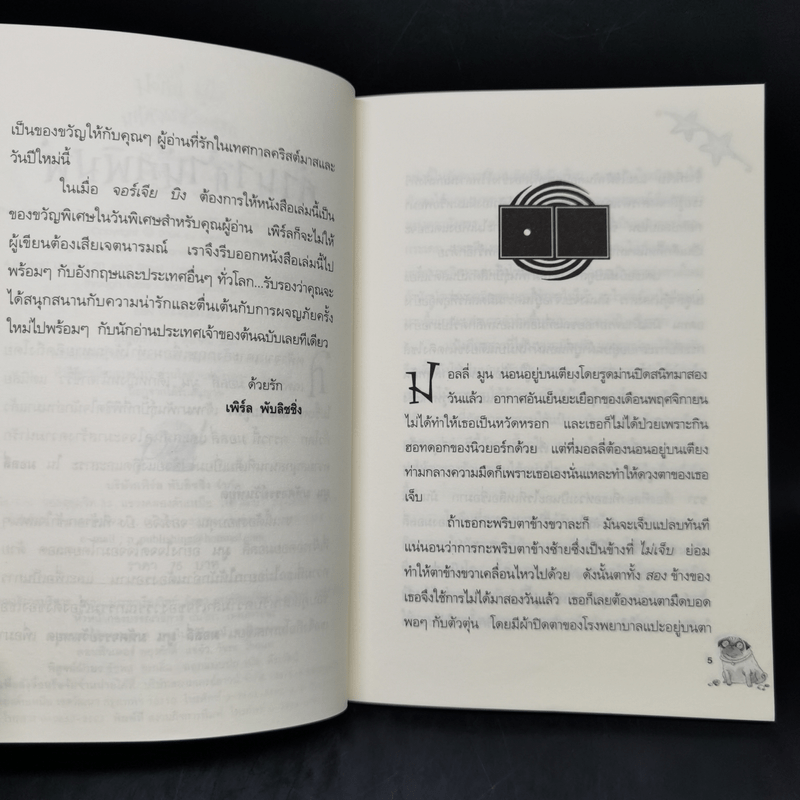 เป็นของขวัญให้กับคุณๆ ผู้อ่านที่รักในเทศกาลคริสต์มาสและ
วันปีใหม่นี้
ในเมื่อ จอร์เจีย บิง ต้องการให้หนังสือเล่มนี้เป็น
ของขวัญพิเศษในวันพิเศษสำหรับคุณผู้อ่าน เพิร์ลก็จะไม่ให้
ผู้เขียนต้องเสียเจตนารมณ์ เราจึงรีบออกหนังสือเล่มนี้ไป
พร้อมๆ กับอังกฤษและประเทศอื่นๆ ทั่วโลก...รับรองว่าคุณจะ
ได้สนุกสนานกับความน่ารักและตื่นเต้นกับการผจญภัยครั้ง
ใหม่ไปพร้อมๆ กับนักอ่านประเทศเจ้าของต้นฉบับเลยทีเดียว
ด้วยรัก
เพิร์ล พับลิชชิ่ง
มอลลี่ มูน นอนอยู่บนเตียงโดยรูดม่านปิดสนิทมาสอง
วันแล้ว อากาศอันเย็นยะเยือกของเดือนพฤศจิกายน
ไม่ได้ทำให้เธอเป็นหวัดหรอก และเธอก็ไม่ได้ป่วยเพราะกิน
ฮอทดอกของนิวยอร์กด้วย แต่ที่มอลลี่ต้องนอนอยู่บนเตียง
ท่ามกลางความมืดก็เพราะเธอเองนั่นแหละทำให้ดวงตาของเธอ
เจ็บ
ถ้าเธอกะพริบตาข้างขวาละก็ มันจะเจ็บแปลบทันที
แน่นอนว่าการกะพริบตาข้างซ้ายซึ่งเป็นข้างที่ ไม่เจ็บ ย่อม
ทำให้ตาข้างขวาเคลื่อนไหวไปด้วย ดังนั้นตาทั้ง สอง ข้างของ
เธอจึงใช้การไม่ได้มาสองวันแล้ว เธอก็เลยต้องนอนตามืดบอด
พอๆ กับตัวตุ่น โดยมีผ้าปิดตาของโรงพยาบาลแปะอยู่บนตา
5